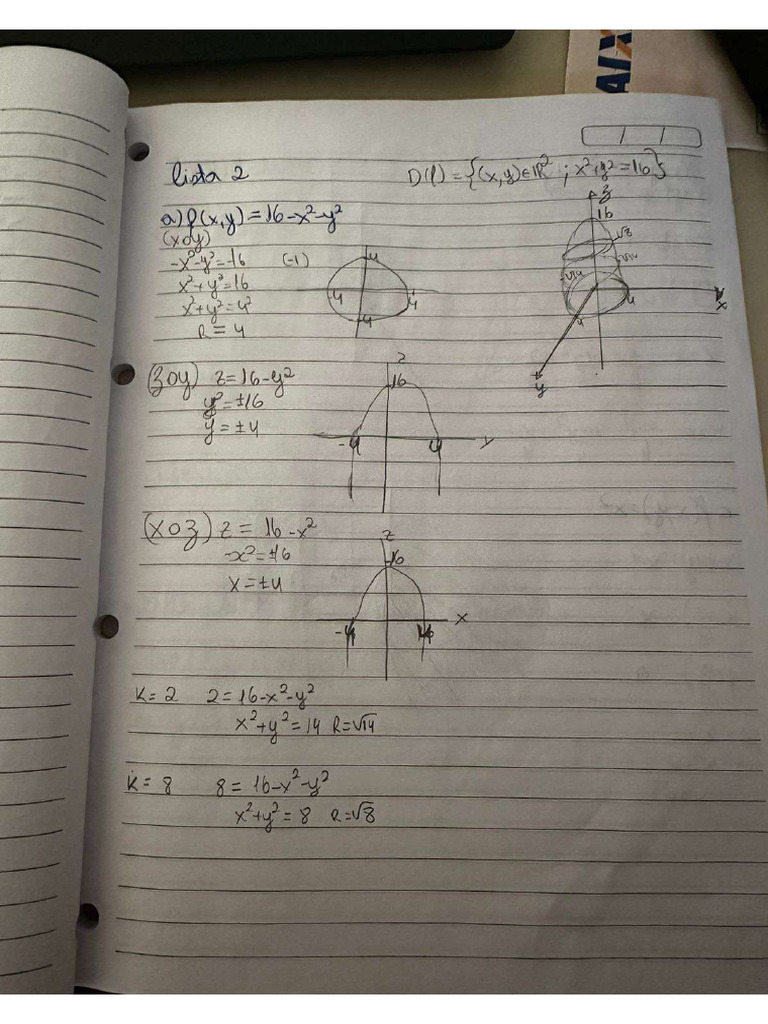 AIX
lista 2
D(f) = {(x,y) ∈ ℝ² ; x²+y² = 16}
a) f(x,y) = 16-x²-y²
(xoy)
-x²-y² = -16 (-1)
x²+y² = 16
x²+y² = 4²
R = 4
4
-4 4
-4
z
16
√8
√14 √14
4 4
x
y
(zoy) z = 16-y²
y² = ±16
y = ±4
z
16
-4 4 y
(xoz) z = 16-x²
-x² = ±16
x = ±4
z
16
-4 x
K = 2 2 = 16-x²-y²
x²+y² = 14 R = √14
K = 8 8 = 16-x²-y²
x²+y² = 8 R = √8